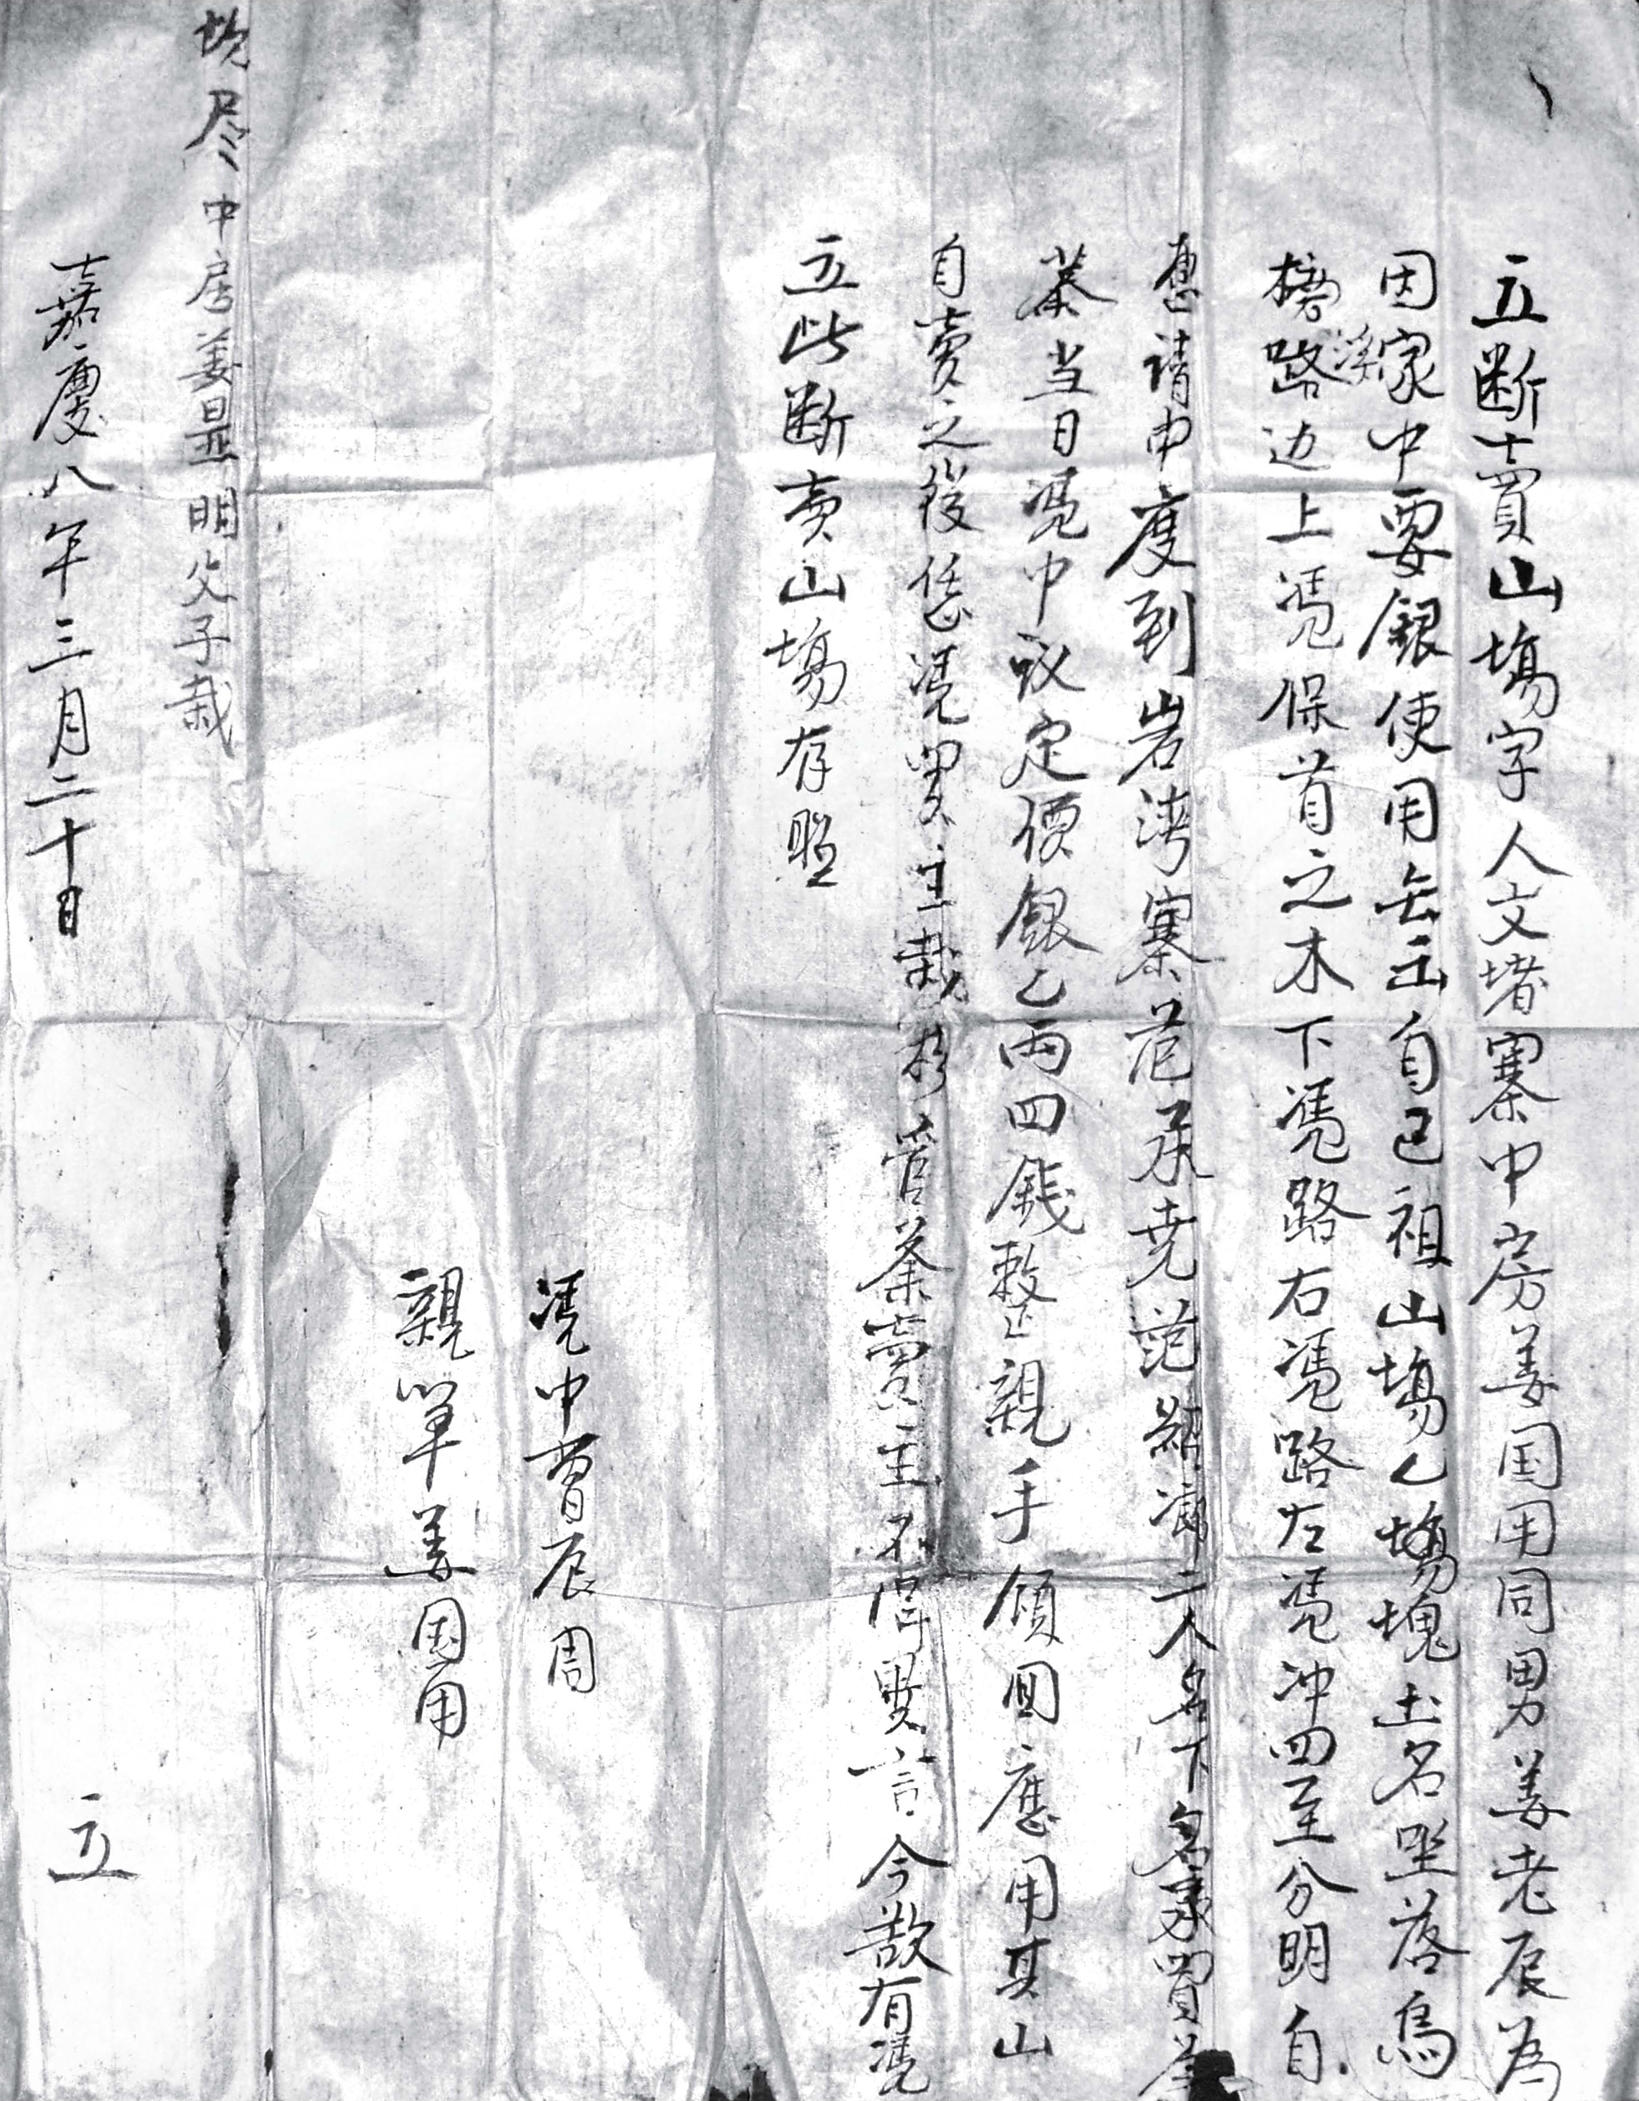 立断賣山塲字人文堵寨中房姜国用同男姜老辰為
因家中要銀使用無出自己祖山塲乙塲塊土名坐落烏
榜溪路边上凭保首之木下凭路右凭路左凭冲四至分明自
愿请中度到岩湾寨范承尭范紹滴二人名下名承買為
業当日凭中议定價銀乙両四錢整親手領回應用其山
自賣之後任凭買主栽杉管業賣主不得異言今欲有凭
立此断卖山塲有照
凭中曹辰周
親筆姜国用
坎尽中房姜显明父子栽
嘉慶八年三月二十日 立